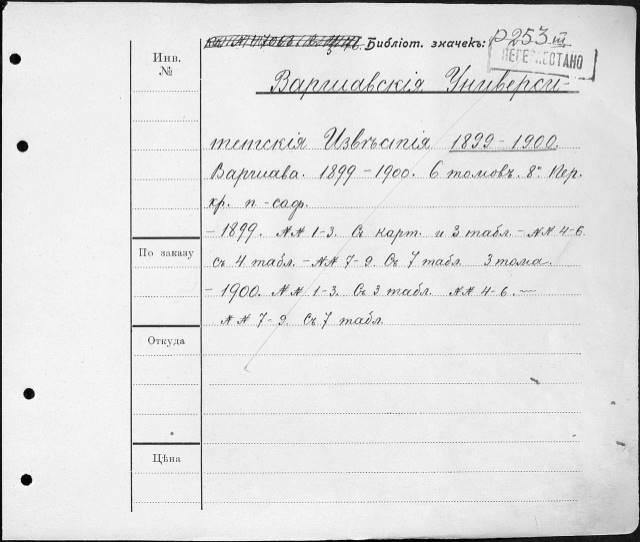 Библіот. значекъ: Р 253 III
ПЕРЕИНСТАНО
Инв.
№
Варшавскія Универси-
тетскія Извѣстія 1899-1900.
Варшава. 1899-1900. 6 томовъ. 8° Пер.
хр. п-саф.
- 1899. №№ 1-3. Съ карт. и 3 табл. - №№ 4-6.
съ 4 табл. - №№ 7-9. Съ 7 табл. 3 тома.
- 1900. №№ 1-3. Съ 3 табл. №№ 4-6. —
№№ 7-9. Съ 7 табл.
По заказу
Откуда
Цѣна